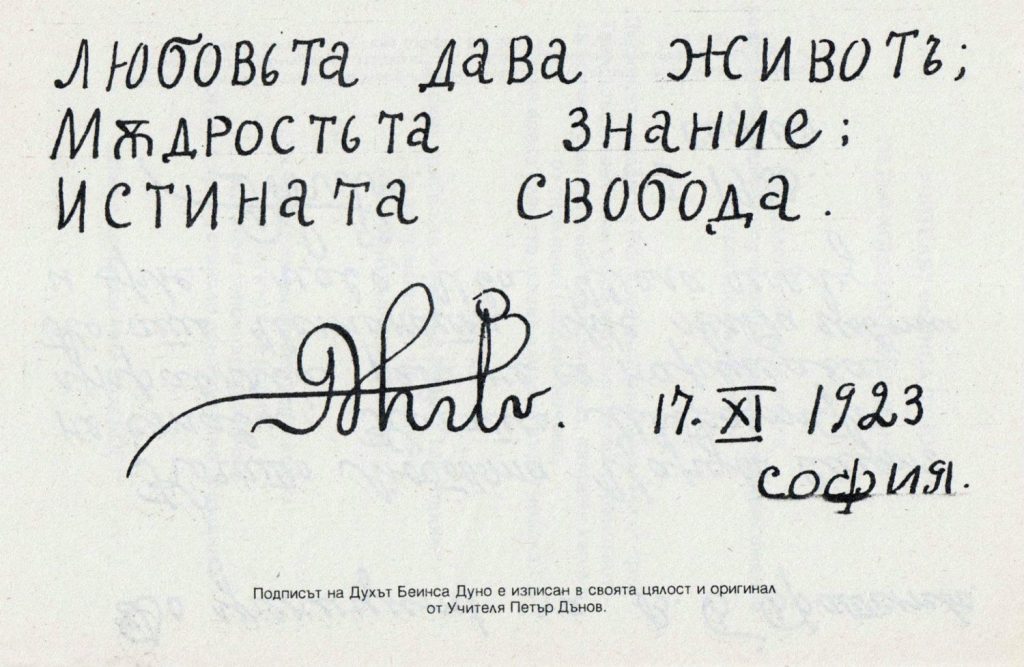 Любовьта дава животъ;
Мѫдростьта знание;
Истината свобода.
17. XI 1923
София.
Подписът на Духът Беинса Дуно е изписан в своята цялост и оригинал
от Учителя Петър Дънов.